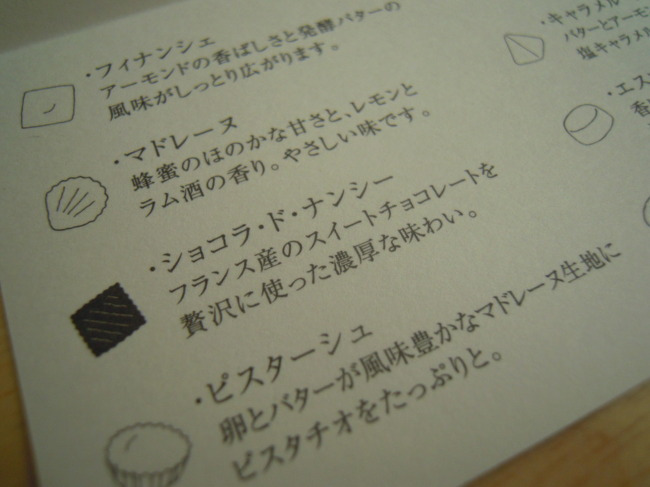 ・フィナンシェ
アーモンドの香ばしさと発酵バターの
風味がしっとり広がります。
・マドレーヌ
蜂蜜のほのかな甘さと、レモンと
ラム酒の香り。やさしい味です。
・ショコラ・ド・ナンシー
フランス産のスイートチョコレートを
贅沢に使った濃厚な味わい。
・ピスターシュ
卵とバターが風味豊かなマドレーヌ生地に
ピスタチオをたっぷりと。
・キャラメル
バターとアーモ
塩キャラメル
・エス
香